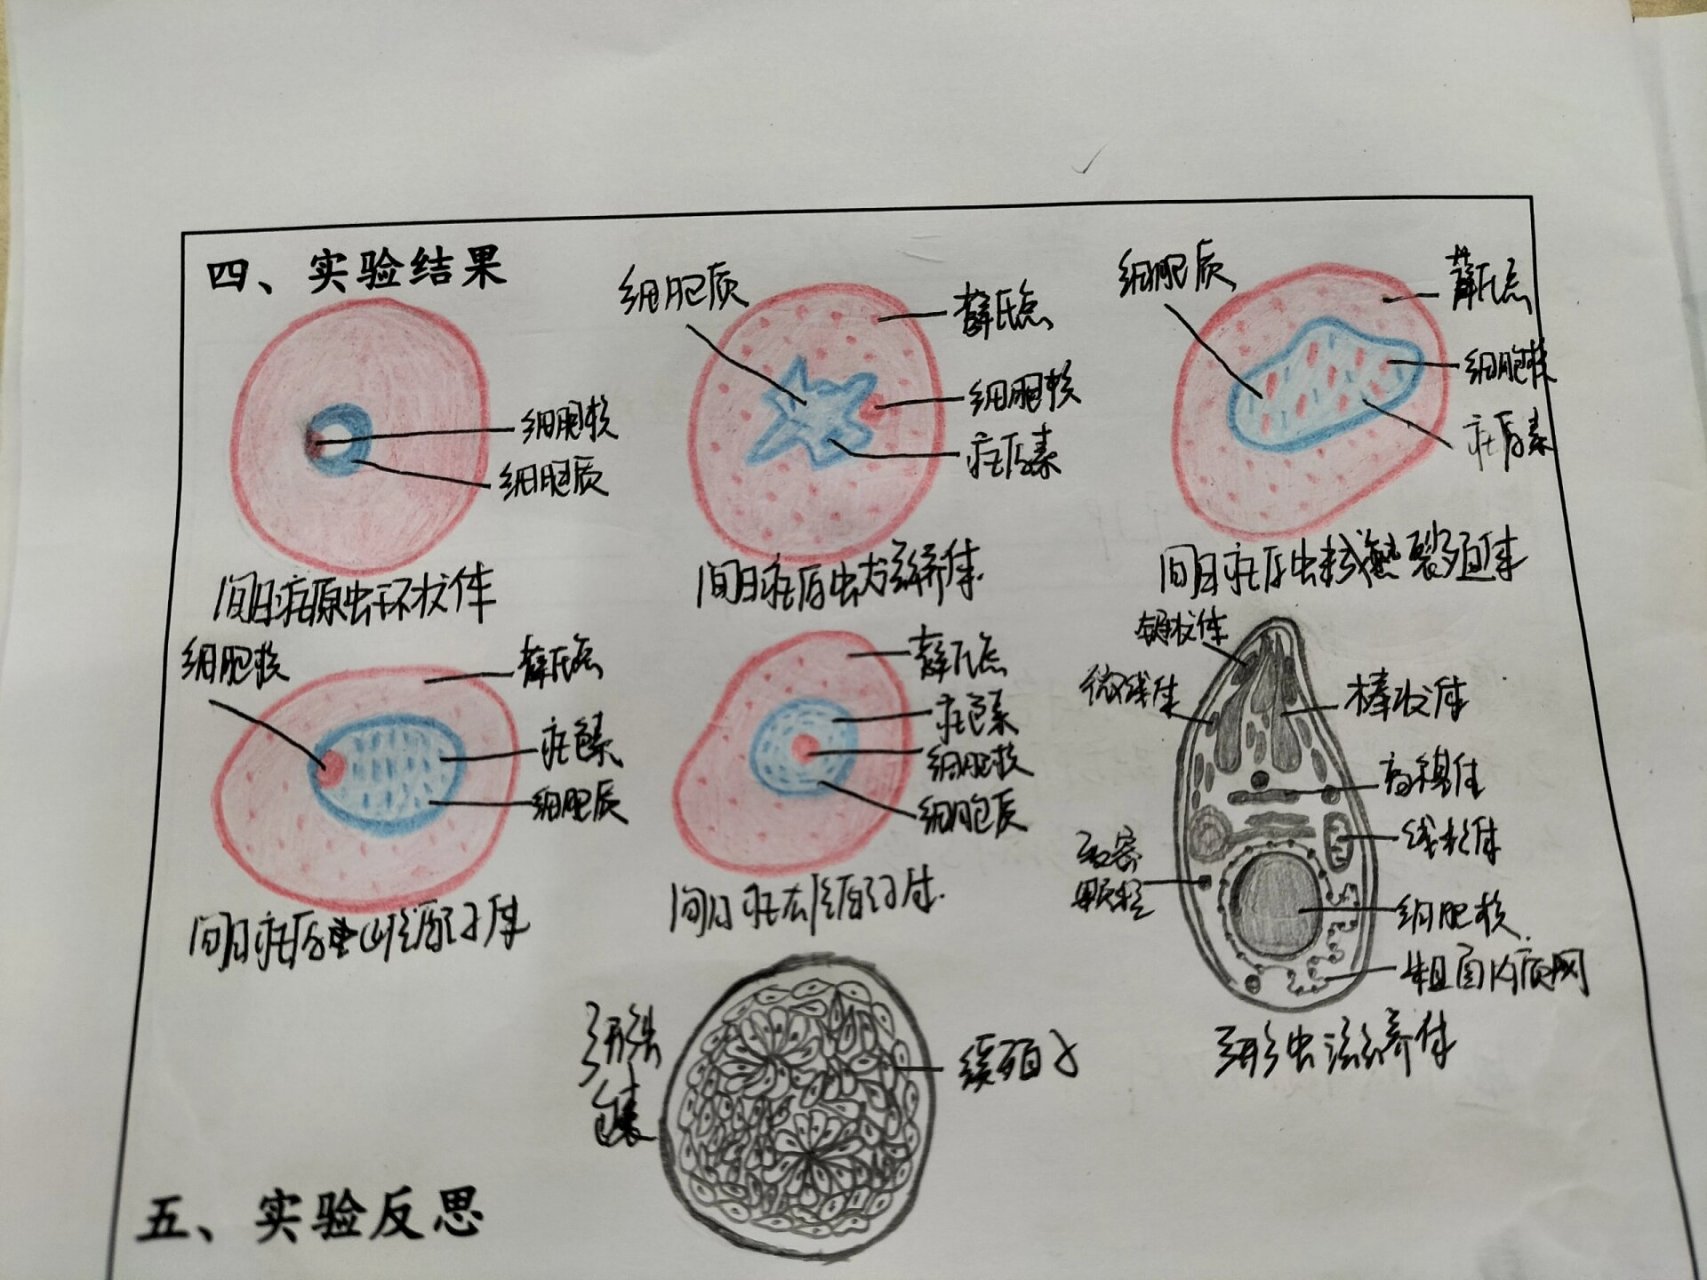 四、实验结果
细胞质
薛氏点
细胞核
疟原素
细胞质
薛氏点
细胞核
疟原素
细胞核
细胞质
间日疟原虫环状体
间日疟原虫大滋养体
间日疟原虫成熟裂殖体
细胞核
薛氏点
疟色素
细胞质
薛氏点
疟色素
细胞核
细胞质
类锥体
微线体
棒状体
高积体
线粒体
致密
颗粒
细胞核
粗面内质网
间日疟原虫雄配子体
间日疟原雌配子体
弓形虫滋养体
弓形虫
包囊
缓殖子
五、实验反思